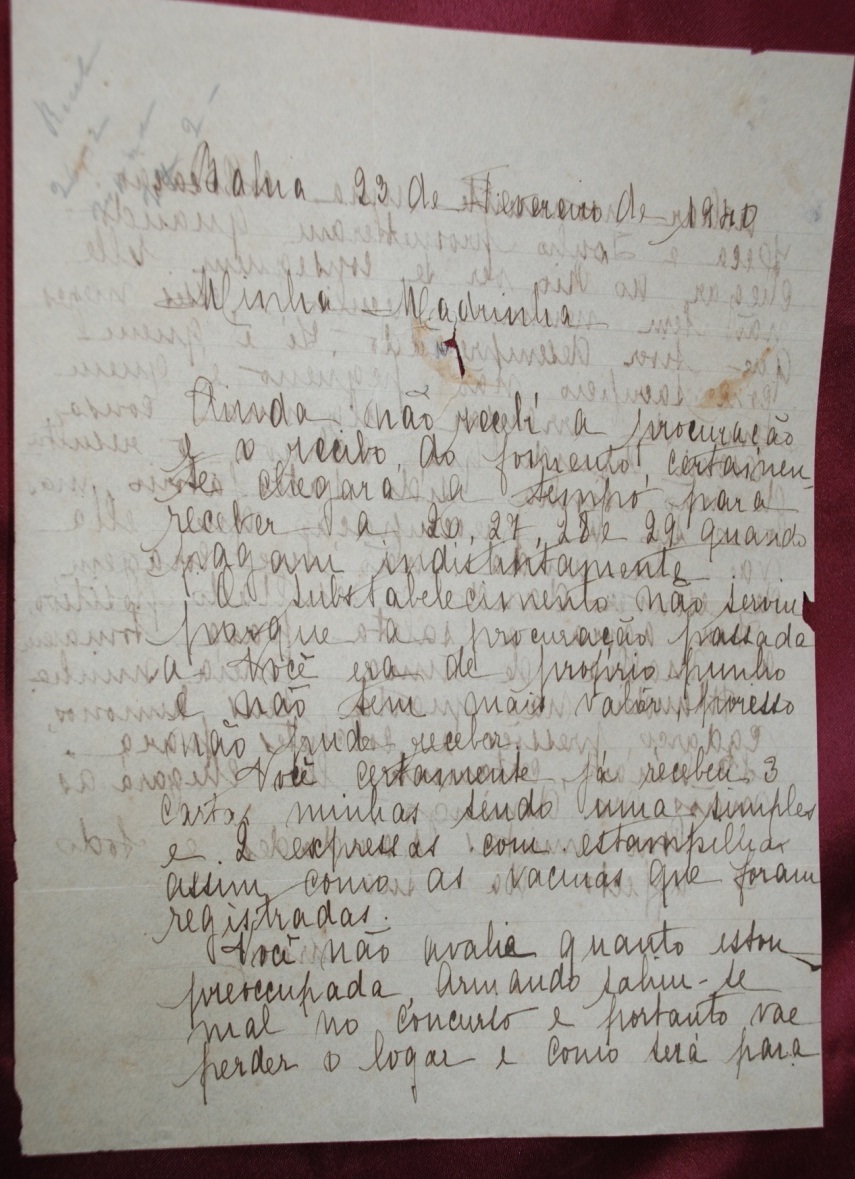 Bahia 23 de Fevereiro de 1940
Minha Madrinha
Ainda não recebí a procuração
e o recibo do fomento, certamen-
te chegará a tempo para
receber a 26, 27, 28 e 29 quando
pagam indistintamente
O substabelecimento não serviu
porque a procuração passada
a Você era de proprio punho
e não tem mais valôr, porisso
não pude receber.
Você certamente já recebeu 3
cartas minhas sendo uma simples
e 2 expressas com estampilhas
assim como as vacinas que foram
registradas.
Você não avalie quanto estou
preoccupada, Armando sahiu-se
mal no concurso e portanto vae
perder o logar e como será para